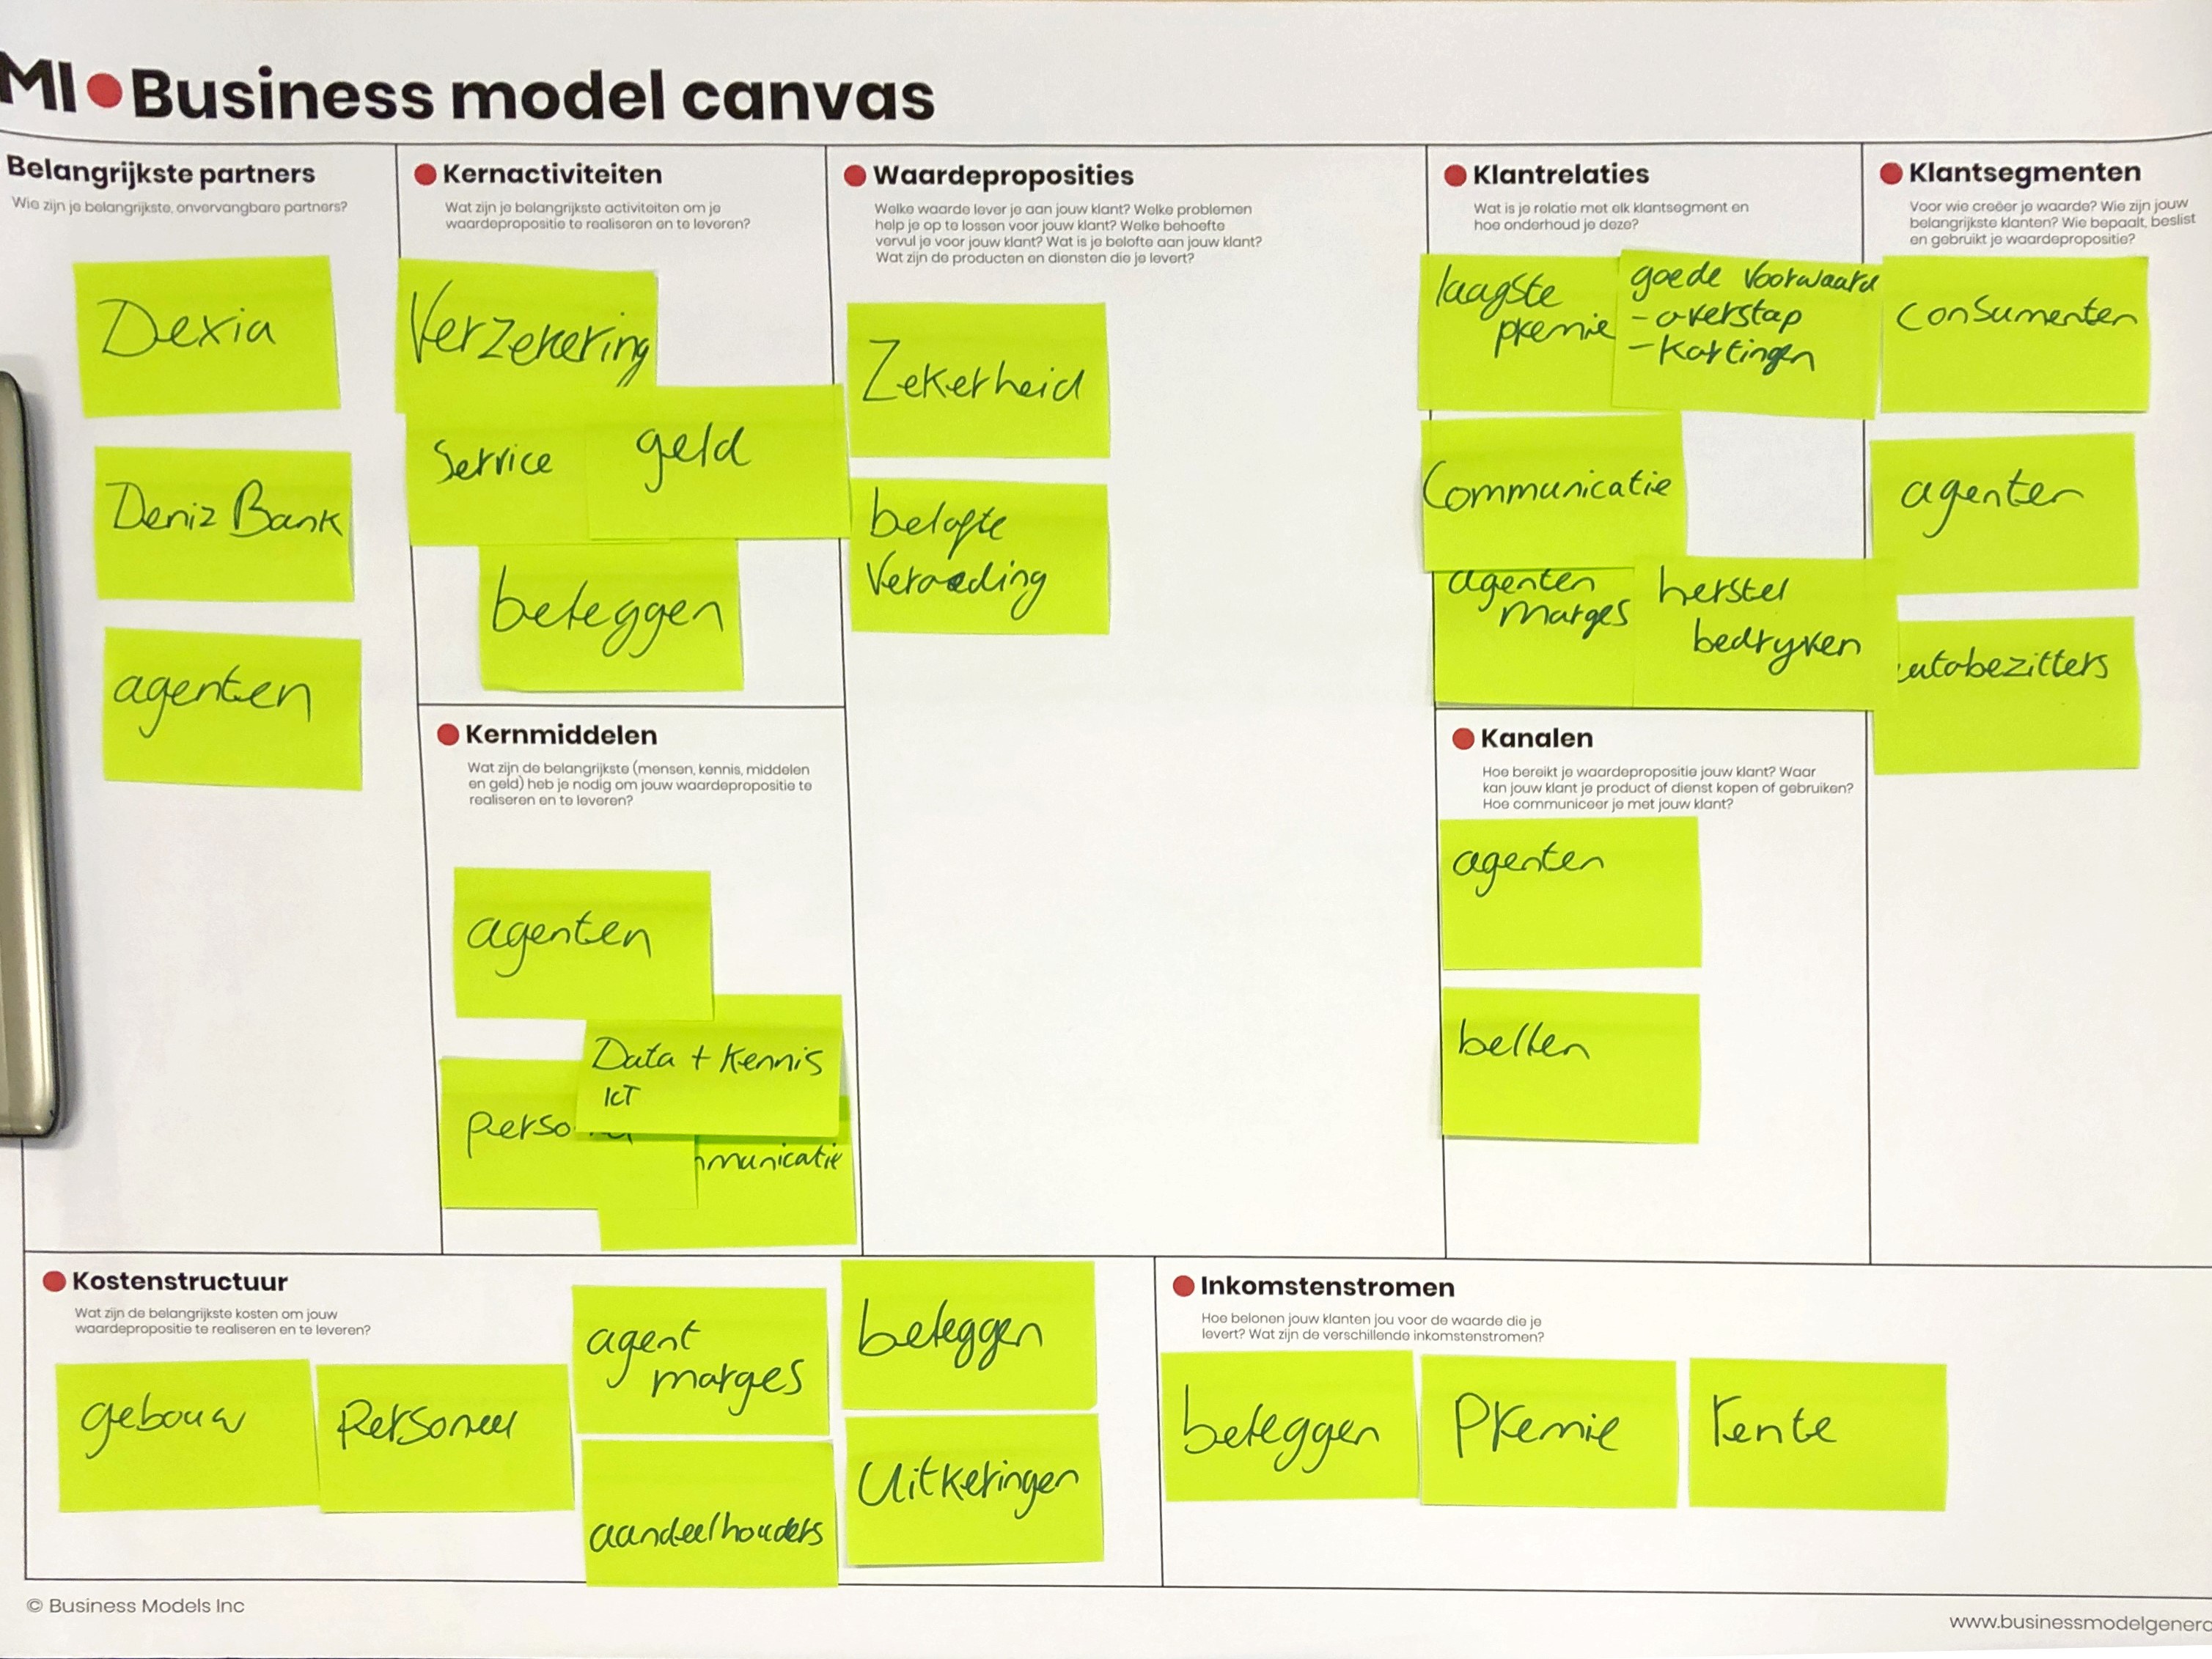 MI Business model canvas
Belangrijkste partners
Wie zijn je belangrijkste, onvervangbare partners?
Dexia
Deniz Bank
agenten
Kernactiviteiten
Wat zijn je belangrijkste activiteiten om je
waardepropositie te realiseren en te leveren?
Verzekering
Service
geld
beleggen
Kernmiddelen
Wat zijn de belangrijkste (mensen, kennis, middelen
en geld) heb je nodig om jouw waardepropositie te
realiseren en te leveren?
agenten
Data + Kennis
ICT
perso
mmunicatie
Waardeproposities
Welke waarde lever je aan jouw klant? Welke problemen
help je op te lossen voor jouw klant? Welke behoefte
vervul je voor jouw klant? Wat is je belofte aan jouw klant?
Wat zijn de producten en diensten die je levert?
Zekerheid
belofte
Klantrelaties
Wat is je relatie met elk klantsegment en
hoe onderhoud je deze?
laagste
premie
goede voorwaard
- overstap
- Kortingen
Communicatie
agenten
marges
herstel
bedryven
Kanalen
Hoe bereikt je waardepropositie jouw klant? Waar
kan jouw klant je product of dienst kopen of gebruiken?
Hoe communiceer je met jouw klant?
agenten
bellen
Klantsegmenten
Voor wie creëer je waarde? Wie zijn jouw
belangrijkste klanten? Wie bepaalt, beslist
en gebruikt je waardepropositie?
Consumenten
agenten
autobezitters
Kostenstructuur
Wat zijn de belangrijkste kosten om jouw
waardepropositie te realiseren en te leveren?
gebouw
Personeel
agent
marges
aandeelhouders
beleggen
Uitkeringen
Inkomstenstromen
Hoe belonen jouw klanten jou voor de waarde die je
levert? Wat zijn de verschillende inkomstenstromen?
beleggen
Premie
rente
© Business Models Inc
www.businessmodelgenera